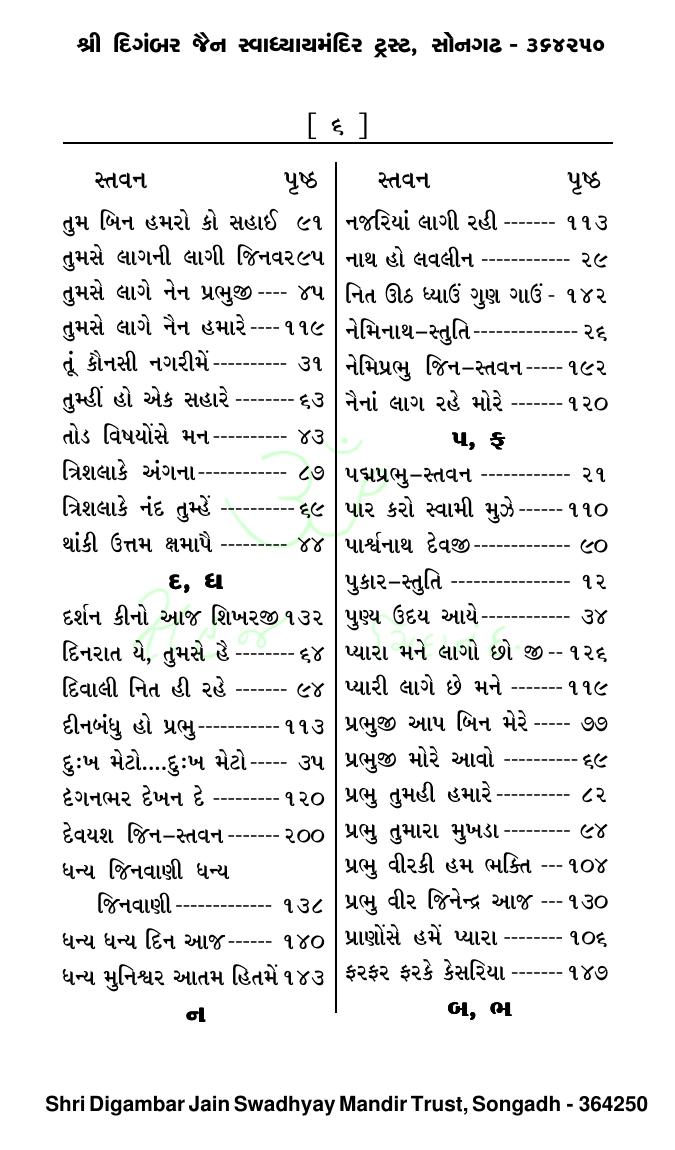 શ્રી દિગંબર જૈન સ્વાધ્યાયમંદિર ટ્રસ્ટ, સોનગઢ - ૩૬૪૨૫૦
[ ૬ ]
સ્તવન પૃષ્ઠ
તુમ બિન હમરો કો સહાઈ ૯૧
તુમસે લાગની લાગી જિનવર૯૫
તુમસે લાગે નેન પ્રભુજી ---- ૪૫
તુમસે લાગે નૈન હમારે---- ૧૧૯
તૂં કૌનસી નગરીમેં ---------- ૩૧
તુમ્હીં હો એક સહારે -------- ૬૩
તોડ વિષયોંસે મન ---------- ૪૩
ત્રિશલાકે અંગના ------------ ૮૭
ત્રિશલાકે નંદ તુમ્હેં ---------- ૬૯
થાંકી ઉત્તમ ક્ષમાપૈ --------- ૪૪
દ, ધ
દર્શન કીનો આજ શિખરજી ૧૩૨
દિનરાત યે, તુમસે હૈ -------- ૬૪
દિવાલી નિત હી રહે ------- ૯૪
દીનબંધુ હો પ્રભુ ----------- ૧૧૩
દુઃખ મેટો....દુઃખ મેટો ----- ૩૫
દંગનભર દેખન દે --------- ૧૨૦
દેવયશ જિન–સ્તવન ------- ૨૦૦
ધન્ય જિનવાણી ધન્ય
જિનવાણી ------------- ૧૩૮
ધન્ય ધન્ય દિન આજ ------ ૧૪૦
ધન્ય મુનિશ્વર આતમ હિતમેં ૧૪૩
ન
સ્તવન પૃષ્ઠ
નજરિયાં લાગી રહી ------- ૧૧૩
નાથ હો લવલીન ------------ ૨૯
નિત ઊઠ ધ્યાઉં ગુણ ગાઉં - ૧૪૨
નેમિનાથ–સ્તુતિ --------------- ૨૬
નેમિપ્રભુ જિન–સ્તવન ----- ૧૯૨
નૈનાં લાગ રહે મોરે ------- ૧૨૦
પ, ફ
પદ્મપ્રભુ–સ્તવન ------------ ૨૧
પાર કરો સ્વામી મુઝે ------ ૧૧૦
પાર્શ્વનાથ દેવજી ------------- ૯૦
પુકાર–સ્તુતિ ---------------- ૧૨
પુણ્ય ઉદય આયે ------------ ૩૪
પ્યારા મને લાગો છો જી -- ૧૨૬
પ્યારી લાગે છે મને ------- ૧૧૯
પ્રભુજી આપ બિન મેરે ----- ૭૭
પ્રભુજી મોરે આવો ---------- ૬૯
પ્રભુ તુમહી હમારે ----------- ૮૨
પ્રભુ તુમારા મુખડા --------- ૯૪
પ્રભુ વીરકી હમ ભક્તિ --- ૧૦૪
પ્રભુ વીર જિનેન્દ્ર આજ --- ૧૩૦
પ્રાણોંસે હમેં પ્યારા -------- ૧૦૬
ફરફર ફરકે કેસરિયા ------- ૧૪૭
બ, ભ
Shri Digambar Jain Swadhyay Mandir Trust, Songadh - 364250